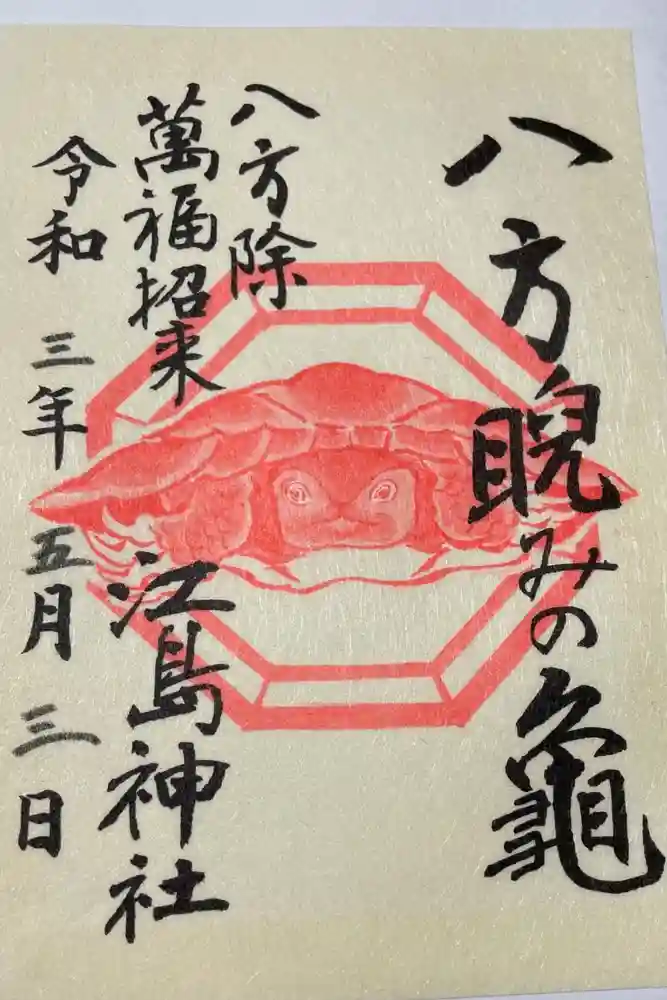 八方睨みの龜
八方除
萬福招来
江島神社
令和三年五月三日